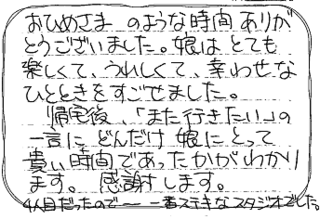 おひめさま のような時間 ありが
とうございました。娘は とても
楽しくて、うれしくて、幸わせな
ひとときをすごせました。
帰宅後、「また行きたい」の
一言に、どんだけ 娘にとって
貴い時間であったかがわかり
ます。 感謝します。
4人目だったので〜 一番ステキなスタジオでした。